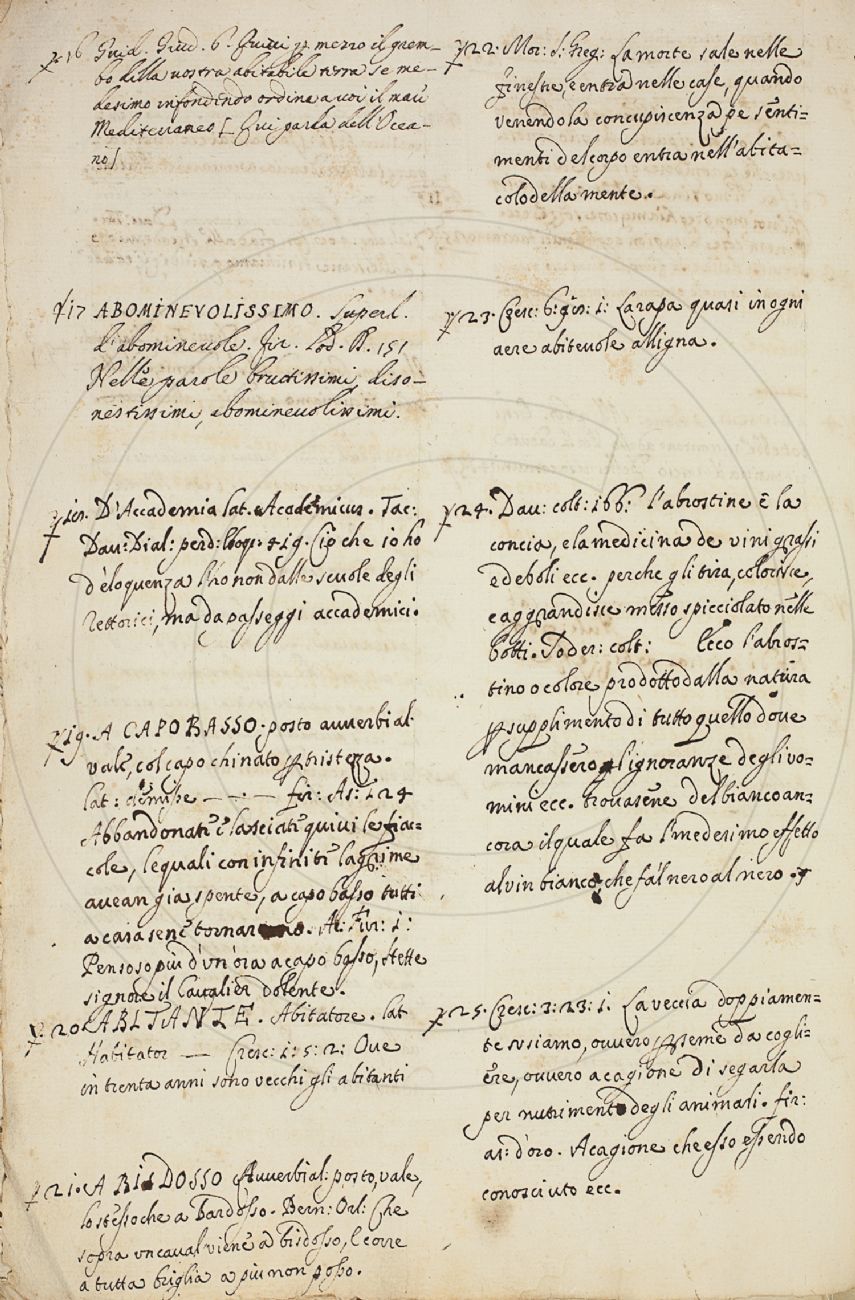 16 Guid. Giud. 6. Quasi p mezzo il grem-
bo della nostra abitabile terra se me-
desimo infondendo ordina a voi il mare
Mediterraneo [ Qui parla dell'Ocea-
no]
17 ABOMINEVOLISSIMO. Superl.
d'abominevole. fir. Lod. B. 151
Nelle parole bruttissimi, diso-
nestissimi, abominevolissimi.
D'Accademia lat. Academicus. Tac:
Dav: Dial: perd: eloq: 419. Ciò che io ho
d'eloquenza l'ho non dalle scuole degli
rettorici, ma da passeggi accademici.
19. A CAPO BASSO; posto avverbial:
vale, col capo chinato p tristezza.
lat: demisse — · — fir: As: 124
Abbandonati e lasciati quivi le fiac=
cole, le quali con infinite lagrime
avean gia spente, a capo basso tutti
a casa sene tornarono. Ar: Fur: 1:
Pensoso più d'un'ora a capo basso, stette
signore il Cavalier dolente.
20. ABITANTE. Abitatore. lat
Habitator — Cresc: 1: 5: 2: Ove
in trenta anni sono vecchi gli abitanti
21. A BISDOSSO Avverbial: posto, vale,
lo stesso che a Bardosso. Bern: Orl: Che
sopra un caval viene a bisdosso, e corre
a tutta briglia a più non posso.
22. Mor: S: Greg: La morte sale nelle
finestre, e entra nelle case, quando
venendo la concupiscenza pe senti=
menti del corpo entra nell'abita=
colo della mente.
23. Cresc: 6: 98: 1: La rapa quasi in ogni
aere abitevole alligna.
24. Dav: colt: 166: l'abrostine è la
concia, e la medicina de vini grassi
e deboli ecc. perche gli tira, colorisce,
e aggrandisce messo spicciolato nelle
botti. Soder: colt: Ecco l'abros=
tino o colore prodotto dalla natura
p supplimento di tutto quello dove
mancassero gl'ignoranze degli vo=
mini ecc. trovasene del bianco an=
cora il quale fa l'medesimo effetto
al vin bianco, che fà 'l nero al nero.
25. Cresc: 3: 23: 1. La veccia doppiamen=
te usiamo, ovvero p seme da cogli=
ere, ovvero a cagione di segarla
per nutrimento degli animali. fir:
as: d'oro. A cagione che esso essendo
conosciuto ecc.